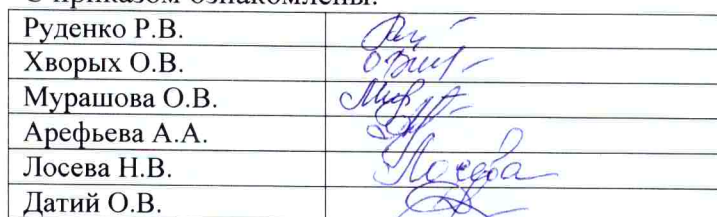 С приказом ознакомлены:
Руденко Р.В.
Хворых О.В.
Мурашова О.В.
Арефьева А.А.
Лосева Н.В. Лосева
Датий О.В.